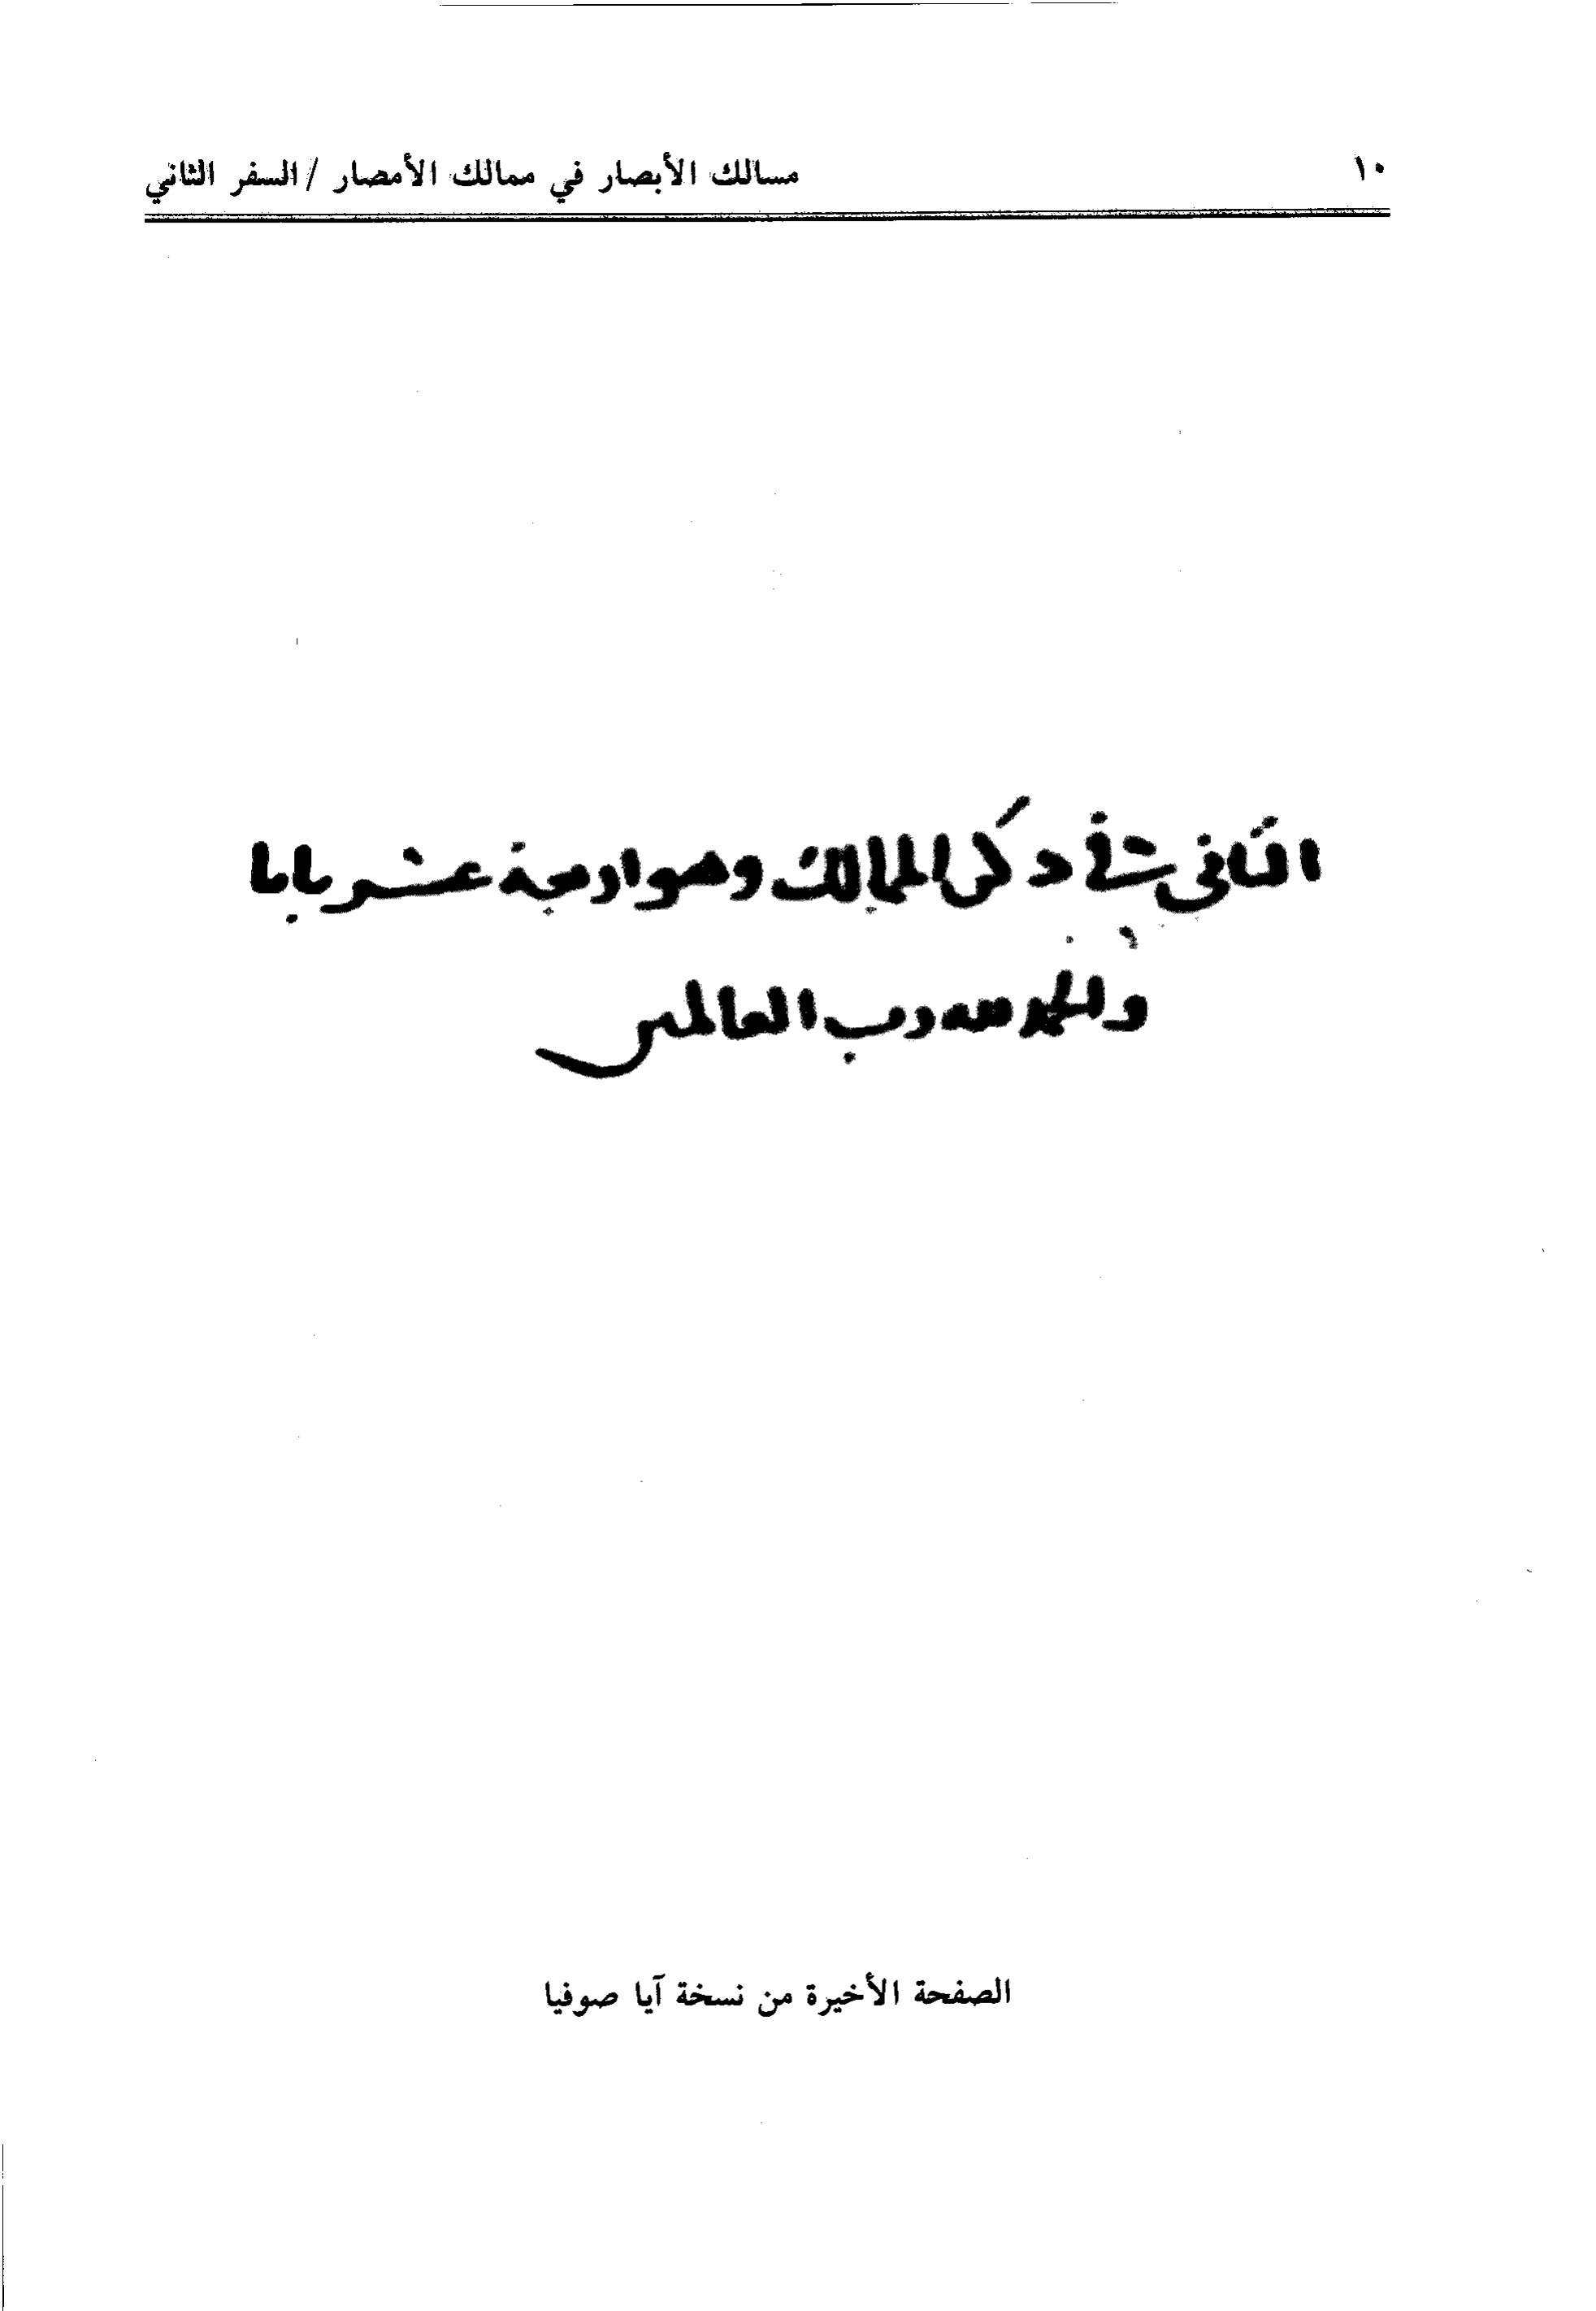 ١٠ مسالك الأبصار في ممالك الأمصار / السفر الثاني
الثاني في ذكر الممالك وهو اربعة عشر بابا
والحمد لله رب العالمين
الصفحة الأخيرة من نسخة آيا صوفيا